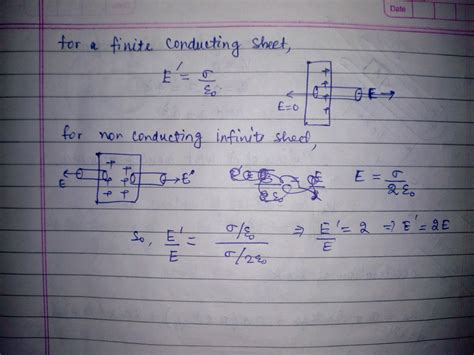 Date
for a finite conducting sheet,
E' = σ/ε₀
E=0
E
for non conducting infinite sheet,
E
E'
E = σ/2ε₀
So, E'/E = σ/ε₀ / σ/2ε₀ ⇒ E'/E = 2 ⇒ E' = 2E